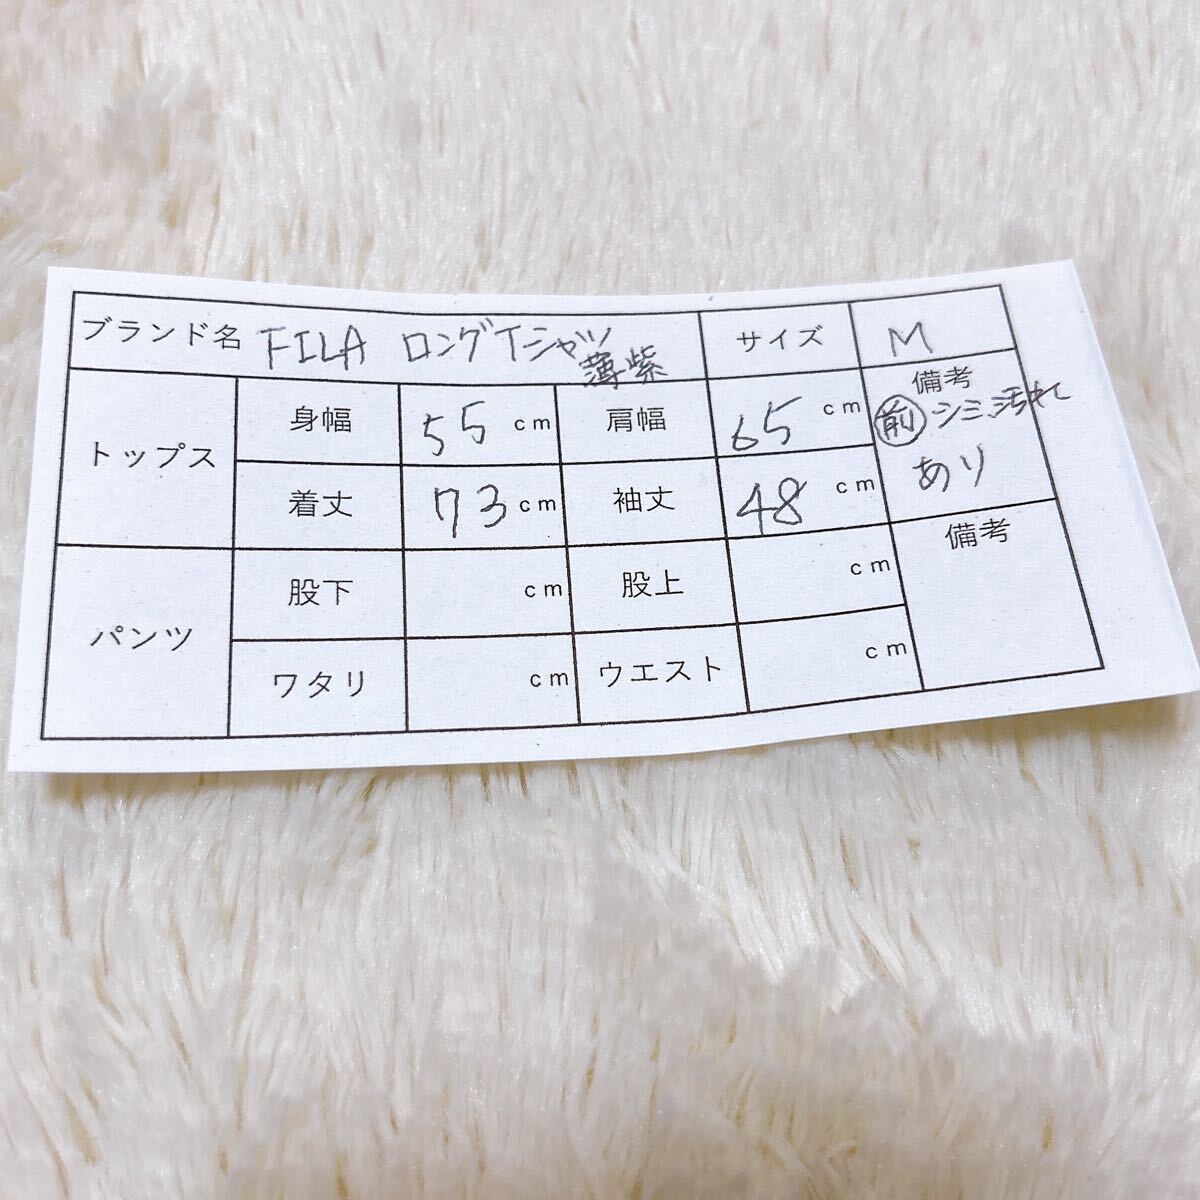 ブランド名 FILA ロングTシャツ 薄紫 サイズ M
トップス 身幅 55 cm 肩幅 65 cm 備考
㊤前 シミ、汚れ
あり
着丈 73 cm 袖丈 48 cm
パンツ 股下 cm 股上 cm 備考
ワタリ cm ウエスト cm